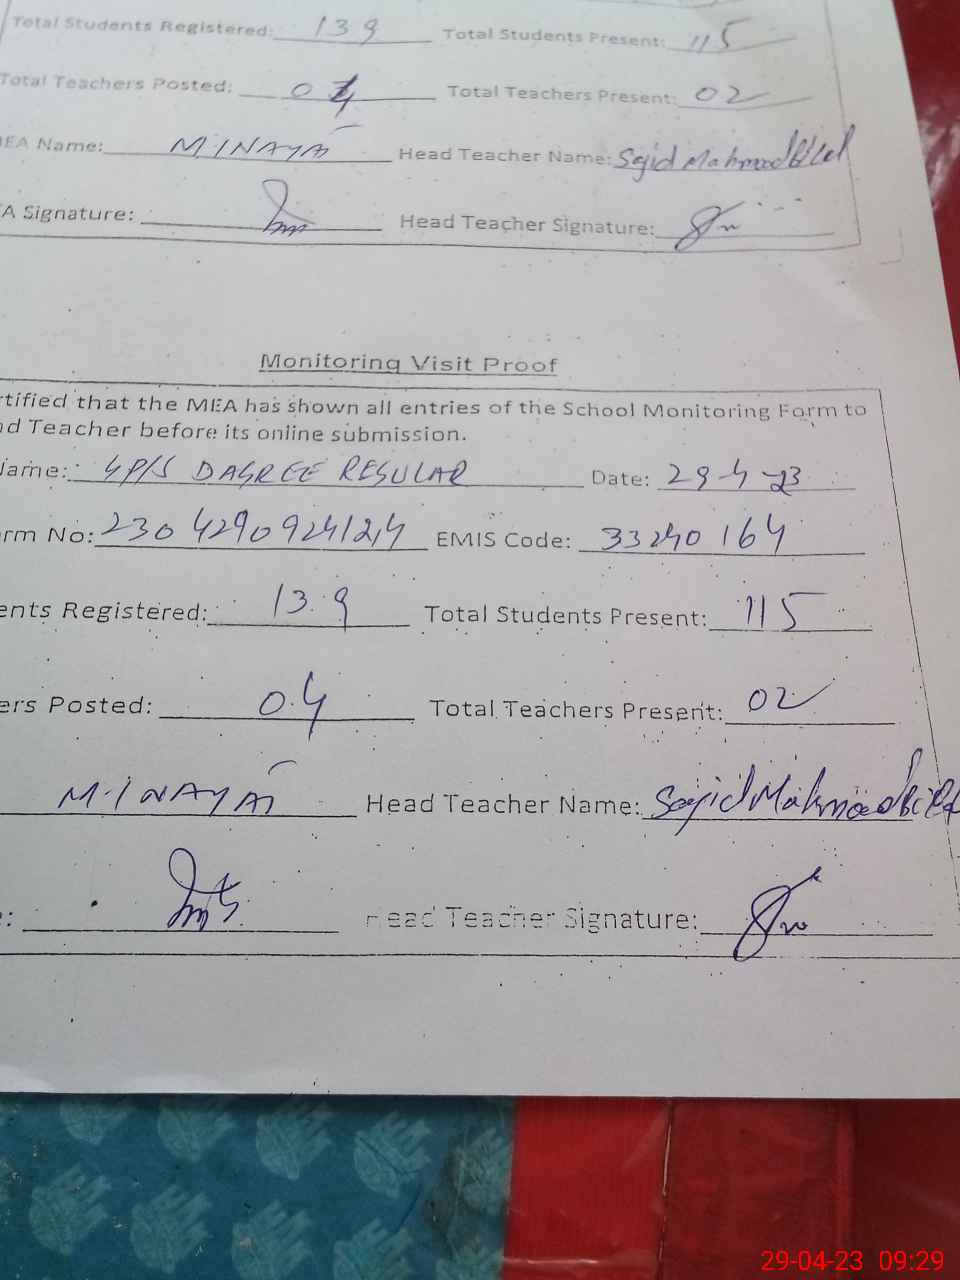 Total Students Registered: 139 Total Students Present: 115
Total Teachers Posted: 04 Total Teachers Present: 02
EA Name: M.INAYAT Head Teacher Name: Sajid Mahmood Bilal
A Signature: Head Teacher Signature:
Monitoring Visit Proof
rtified that the MEA has shown all entries of the School Monitoring Form to
d Teacher before its online submission.
Name: GP/S DAGREE REGULAR Date: 29-4-23
rm No: 230429092412,4 EMIS Code: 33240164
ents Registered: 139 Total Students Present: 115
ers Posted: 04 Total Teachers Present: 02
M.INAYAT Head Teacher Name: Sajid Mahmood Bilal
e: Head Teacher Signature:
29-04-23 09:29